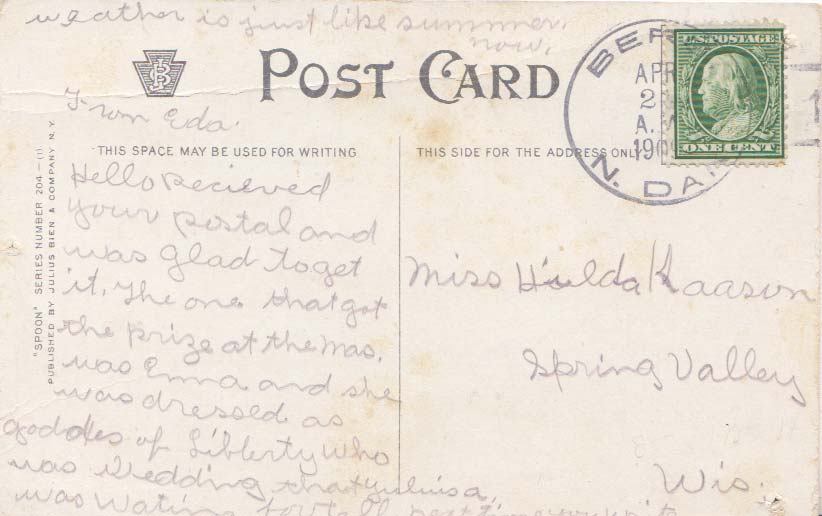 weather is just like summer
now.
POST CARD
From Eda.
THIS SPACE MAY BE USED FOR WRITING
Hello Recieved
your postal and
was glad to get
it. The one that got
the prize at the mas.
was Emma and she
was dressed as
goddes of Libberty Who
was Wedding that
was Wating for tell next time you write
"SPOON" SERIES NUMBER 204-(1)
PUBLISHED BY JULIUS BIEN & COMPANY N.Y.
THIS SIDE FOR THE ADDRESS ONLY
BER
APR
2
A.M
190
N. DAK
U.S. POSTAGE
ONE CENT
Miss Hulda Kaason
Spring Valley
Wis.